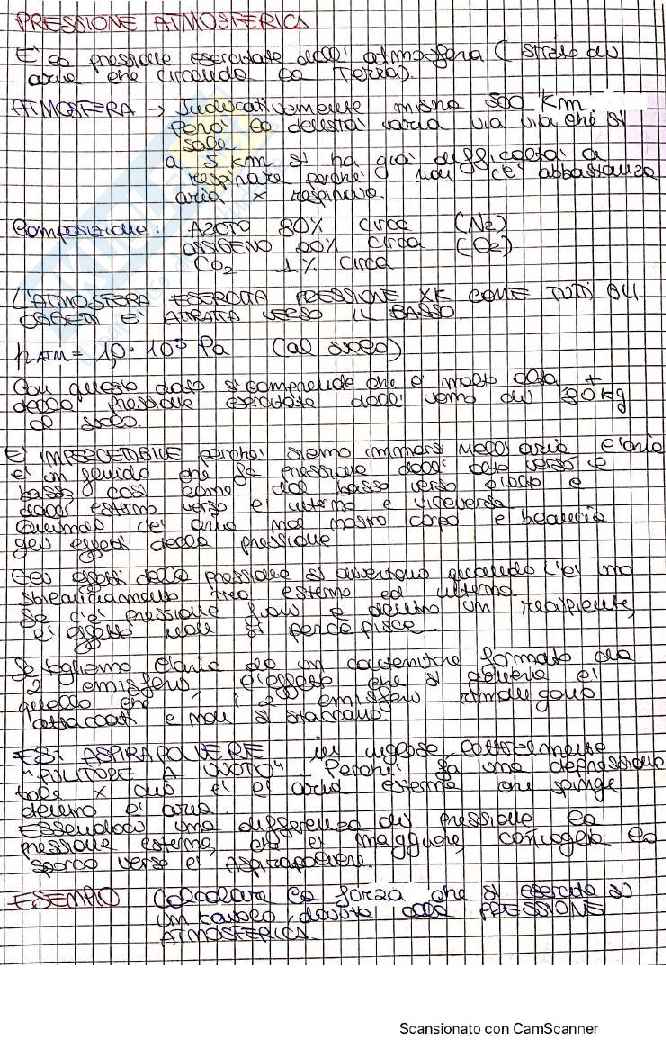 PRESSIONE ATMOSFERICA
È la pressione esercitata dall'atmosfera (strato di
aria che circonda la Terra).
ATMOSFERA → Indicativamente misura 500 Km.
Però la densità varia via via che si
sale
a 5 km si ha già difficoltà a
respirare perché non c'è abbastanza
aria x respirare.
Composizione: AZOTO 80% circa (N2)
OSSIGENO 20% circa (O2)
CO2 1% circa
L'ATMOSFERA ESERCITA PRESSIONE XK COME TUTTI GLI
OGGETTI È ATTRATTA VERSO IL BASSO
PATM = 1,0 · 10⁵ Pa (al suolo)
Con questo dato si comprende che è molto alta +
della pressione esercitata dall' uomo di 80kg
al suolo.
È IMPERCETTIBILE perché siamo immersi nell'aria e l'aria
è un fluido che fa pressione dall' alto verso il
basso così come dal basso verso l'alto e
dall' esterno verso l' interno e viceversa
c'è aria nel nostro corpo e bilancia
gli effetti della pressione
Gli effetti della pressione si avvertono quando c'è uno
sbilanciamento tra esterno ed interno.
Se c'è pressione fuori e dentro un recipiente,
l'effetto non si percepisce.
Se togliamo l'aria da un contenitore formato da
2 emisferi l'effetto che si ottiene è
quello che i 2 emisferi rimangono
attaccati e non si staccano.
ES: ASPIRAPOLVERE in inglese
"PULITORE A VUOTO" Perché fa una depressione
tale x cui è l'aria esterna che spinge
dentro l'aria
Essendoci una differenza di pressione la
pressione esterna, che è maggiore, convoglia lo
sporco verso l'aspirapolvere.
ESEMPIO Calcolare la forza che si esercita su
un tavolo, dovuta alla PRESSIONE
ATMOSFERICA.
Scansionato con CamScanner